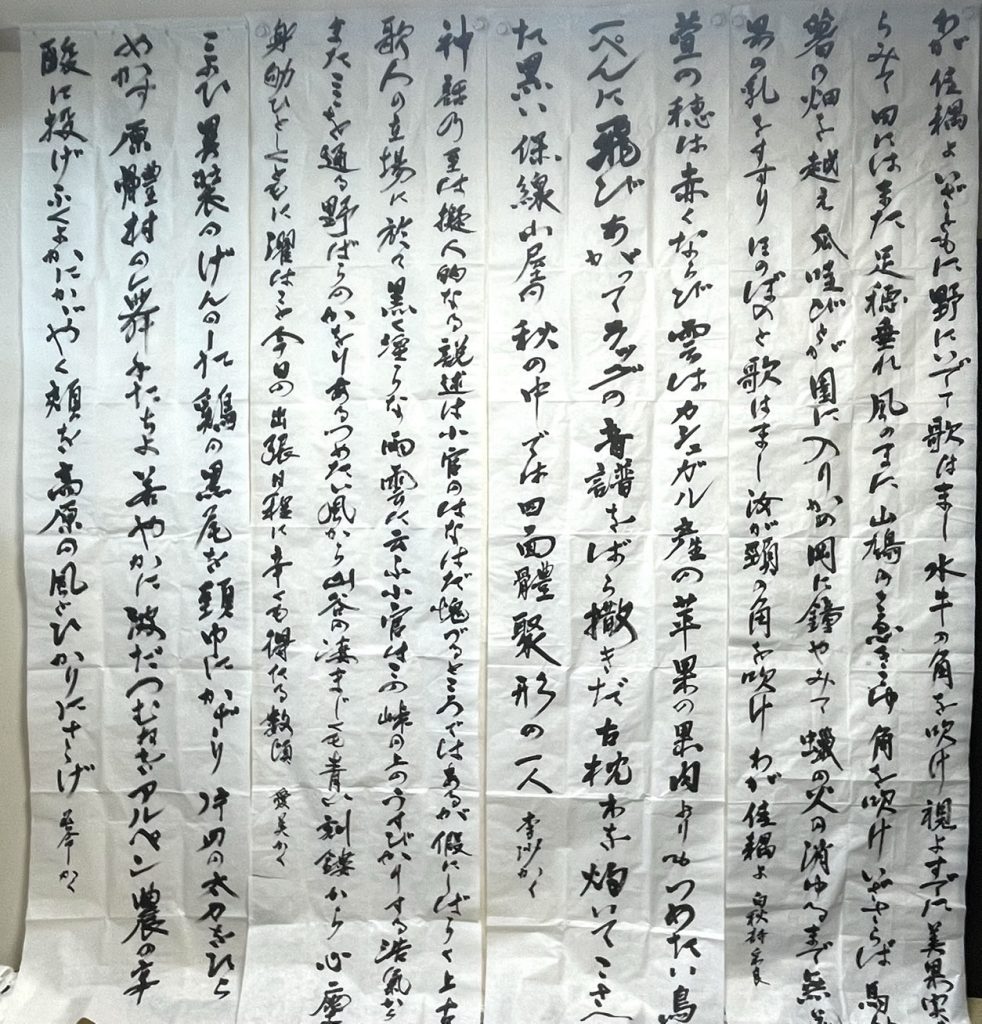 わが佳耦よ いざともに野にいでて 歌はまし 水牛の角を吹け 視よすでに美果実
らみて田にはまた足穂垂れ 風のまに 山鳩のこゑきこゆ 角を吹け いざさらば 馬鈴
薯の畑を越え 瓜哇びとが園に入り かの岡に鐘やみて 蠟の火の消ゆるまで 無花
果の乳をすすり ほのぼのと歌はまし 汝が頸の角を吹け わが佳耦よ 白秋詩
萱の穂は赤くならび 雲はカシュガル産の苹果の果肉よりもつめたい 鳥
一ぺんに飛びあがって ラッグの音譜をばら撒きだ 古枕木を灼いてこさへ
た黒い保線小屋の 秋の中では 四面體聚形の一人 李沙かく
神話乃至は擬人的なる説述は小官のはなはだ愧づるところではあるが 假にしばらく上古
歌人の立場に於て 黒く淫らな雨雲に云ふ 小官はこの峠の上のうすびかりする浩氣から
またここを通る野ばらのかをりあるつめたい風から 山谷の凄まじくも青い刻鏤から 心塵
身劬ひとしくともに濯はうと 今日の出張日程に辛くも得たる数頃 愛美かく
こよひ異装のげん月のした 鶏の黒尾を頭巾にかざり 片刃の太刀をひら
めかす 原體村の舞手たちよ 若やかに波だつむねを アルペン農の辛
酸に投げ ふくよかにかがやく頬を 高原の風とひかりにささげ かく